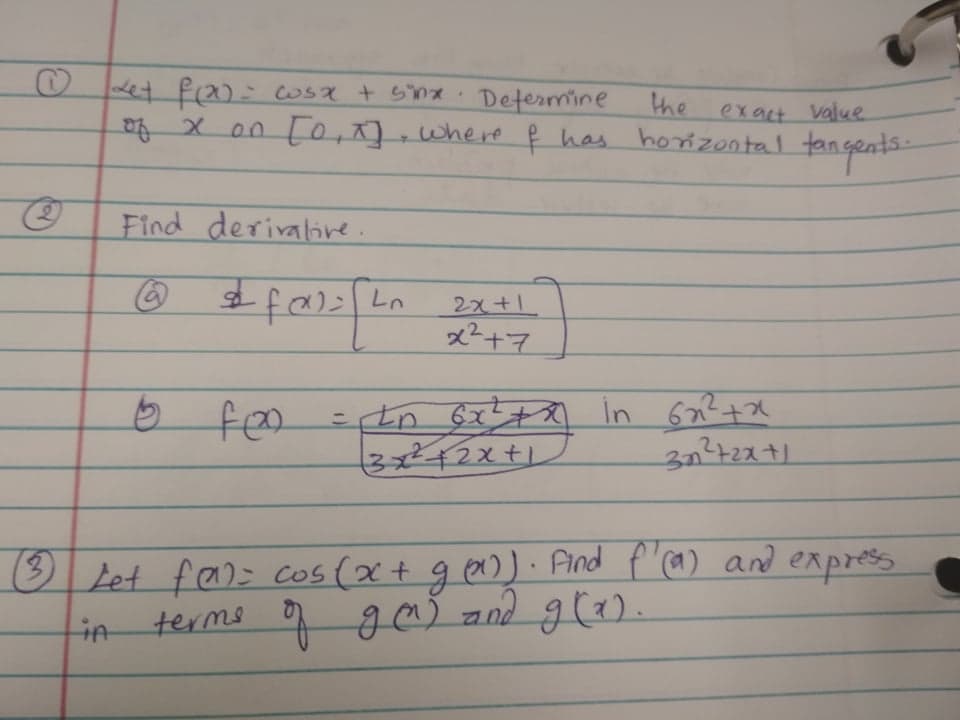 ① Let f(x) = cosx + sinx. Determine the exact value
of x on [0, π], where f has horizontal tangents.
② Find derivative.
ⓐ f(x) = [Ln 2x+1 / x²+7]
ⓑ f(x) = Ln 6x²+x / 3x²+2x+1 ln 6x²+x / 3x²+2x+1
③ Let f(x) = cos(x + g(x)). Find f'(x) and express
in terms of g(x) and g'(x).